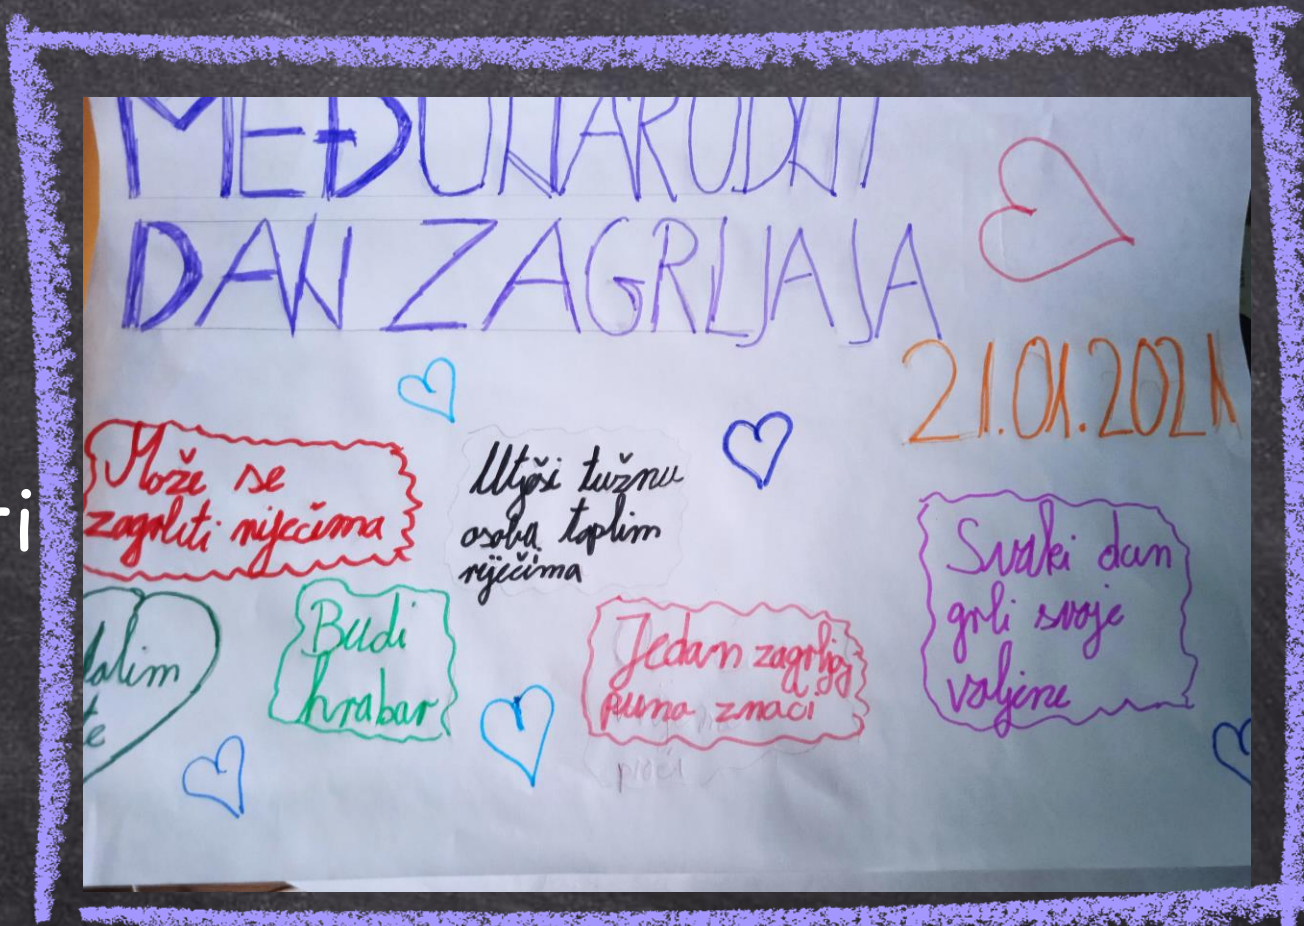 MEĐUNARODNI
DAN ZAGRLJAJA
21.01.2021
Može se
zagrliti riječima
Utješi tužnu
osobu toplim
riječima
Svaki dan
grli svoje
voljene
Budi
hrabar
Jedan zagrljaj
puno znači
te